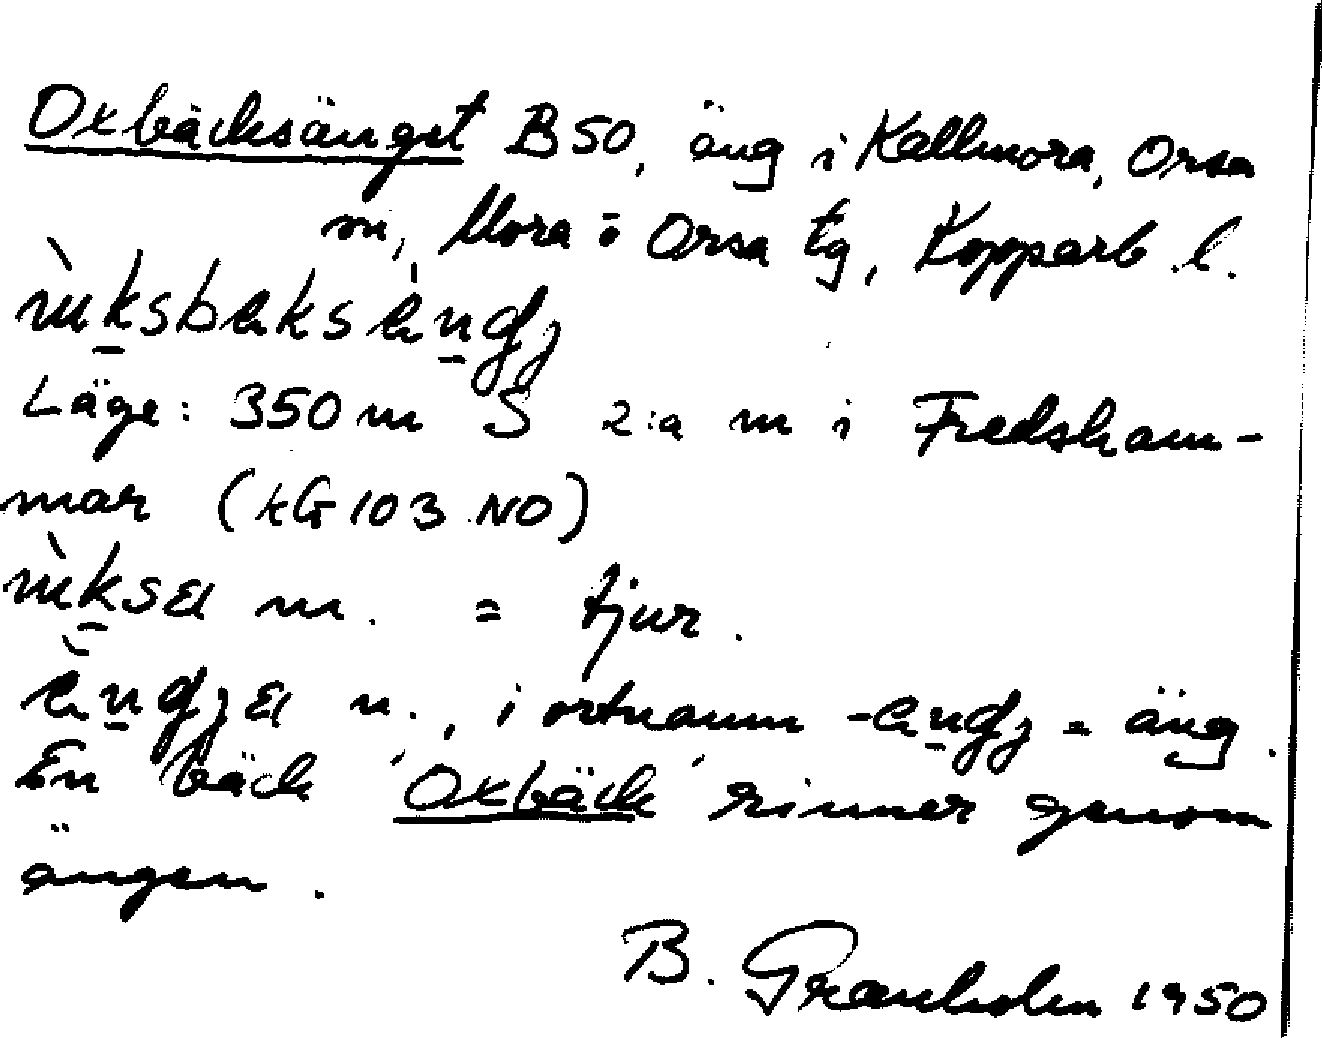 Oxbäcksänget B50, äng i Kallmora, Orsa
sn, Mora o Orsa tg, Kopparb. l.
Läge: 350 m S 2:a m i Fredsham-
mar (kG 103 NO)
m. = tjur.
n., i ortnamn = äng.
En bäck 'Oxbäck' rinner genom
ängen.
B. Granholm 1950